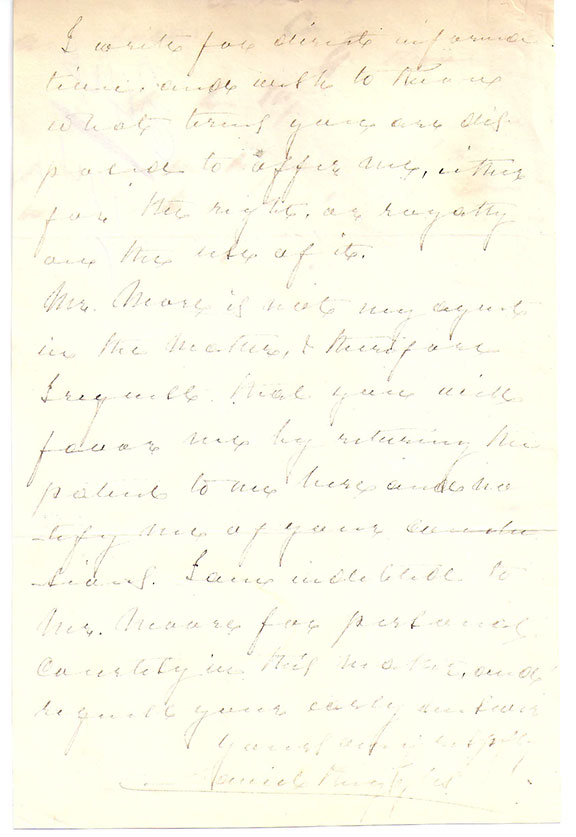 I write for direct informa
tion, and wish to know
what terms you are dis
posed to offer me, either
for the right, or royalty
on the use of it.
Mr. Moore is not my agent
in the matter, & therefore
I request that you will
favor me by returning the
patent to me here and no
tify me of your conclu
sions. I am indebted to
Mr. Moore for personal
Courtesy in this matter, and
request your early answer
Yours